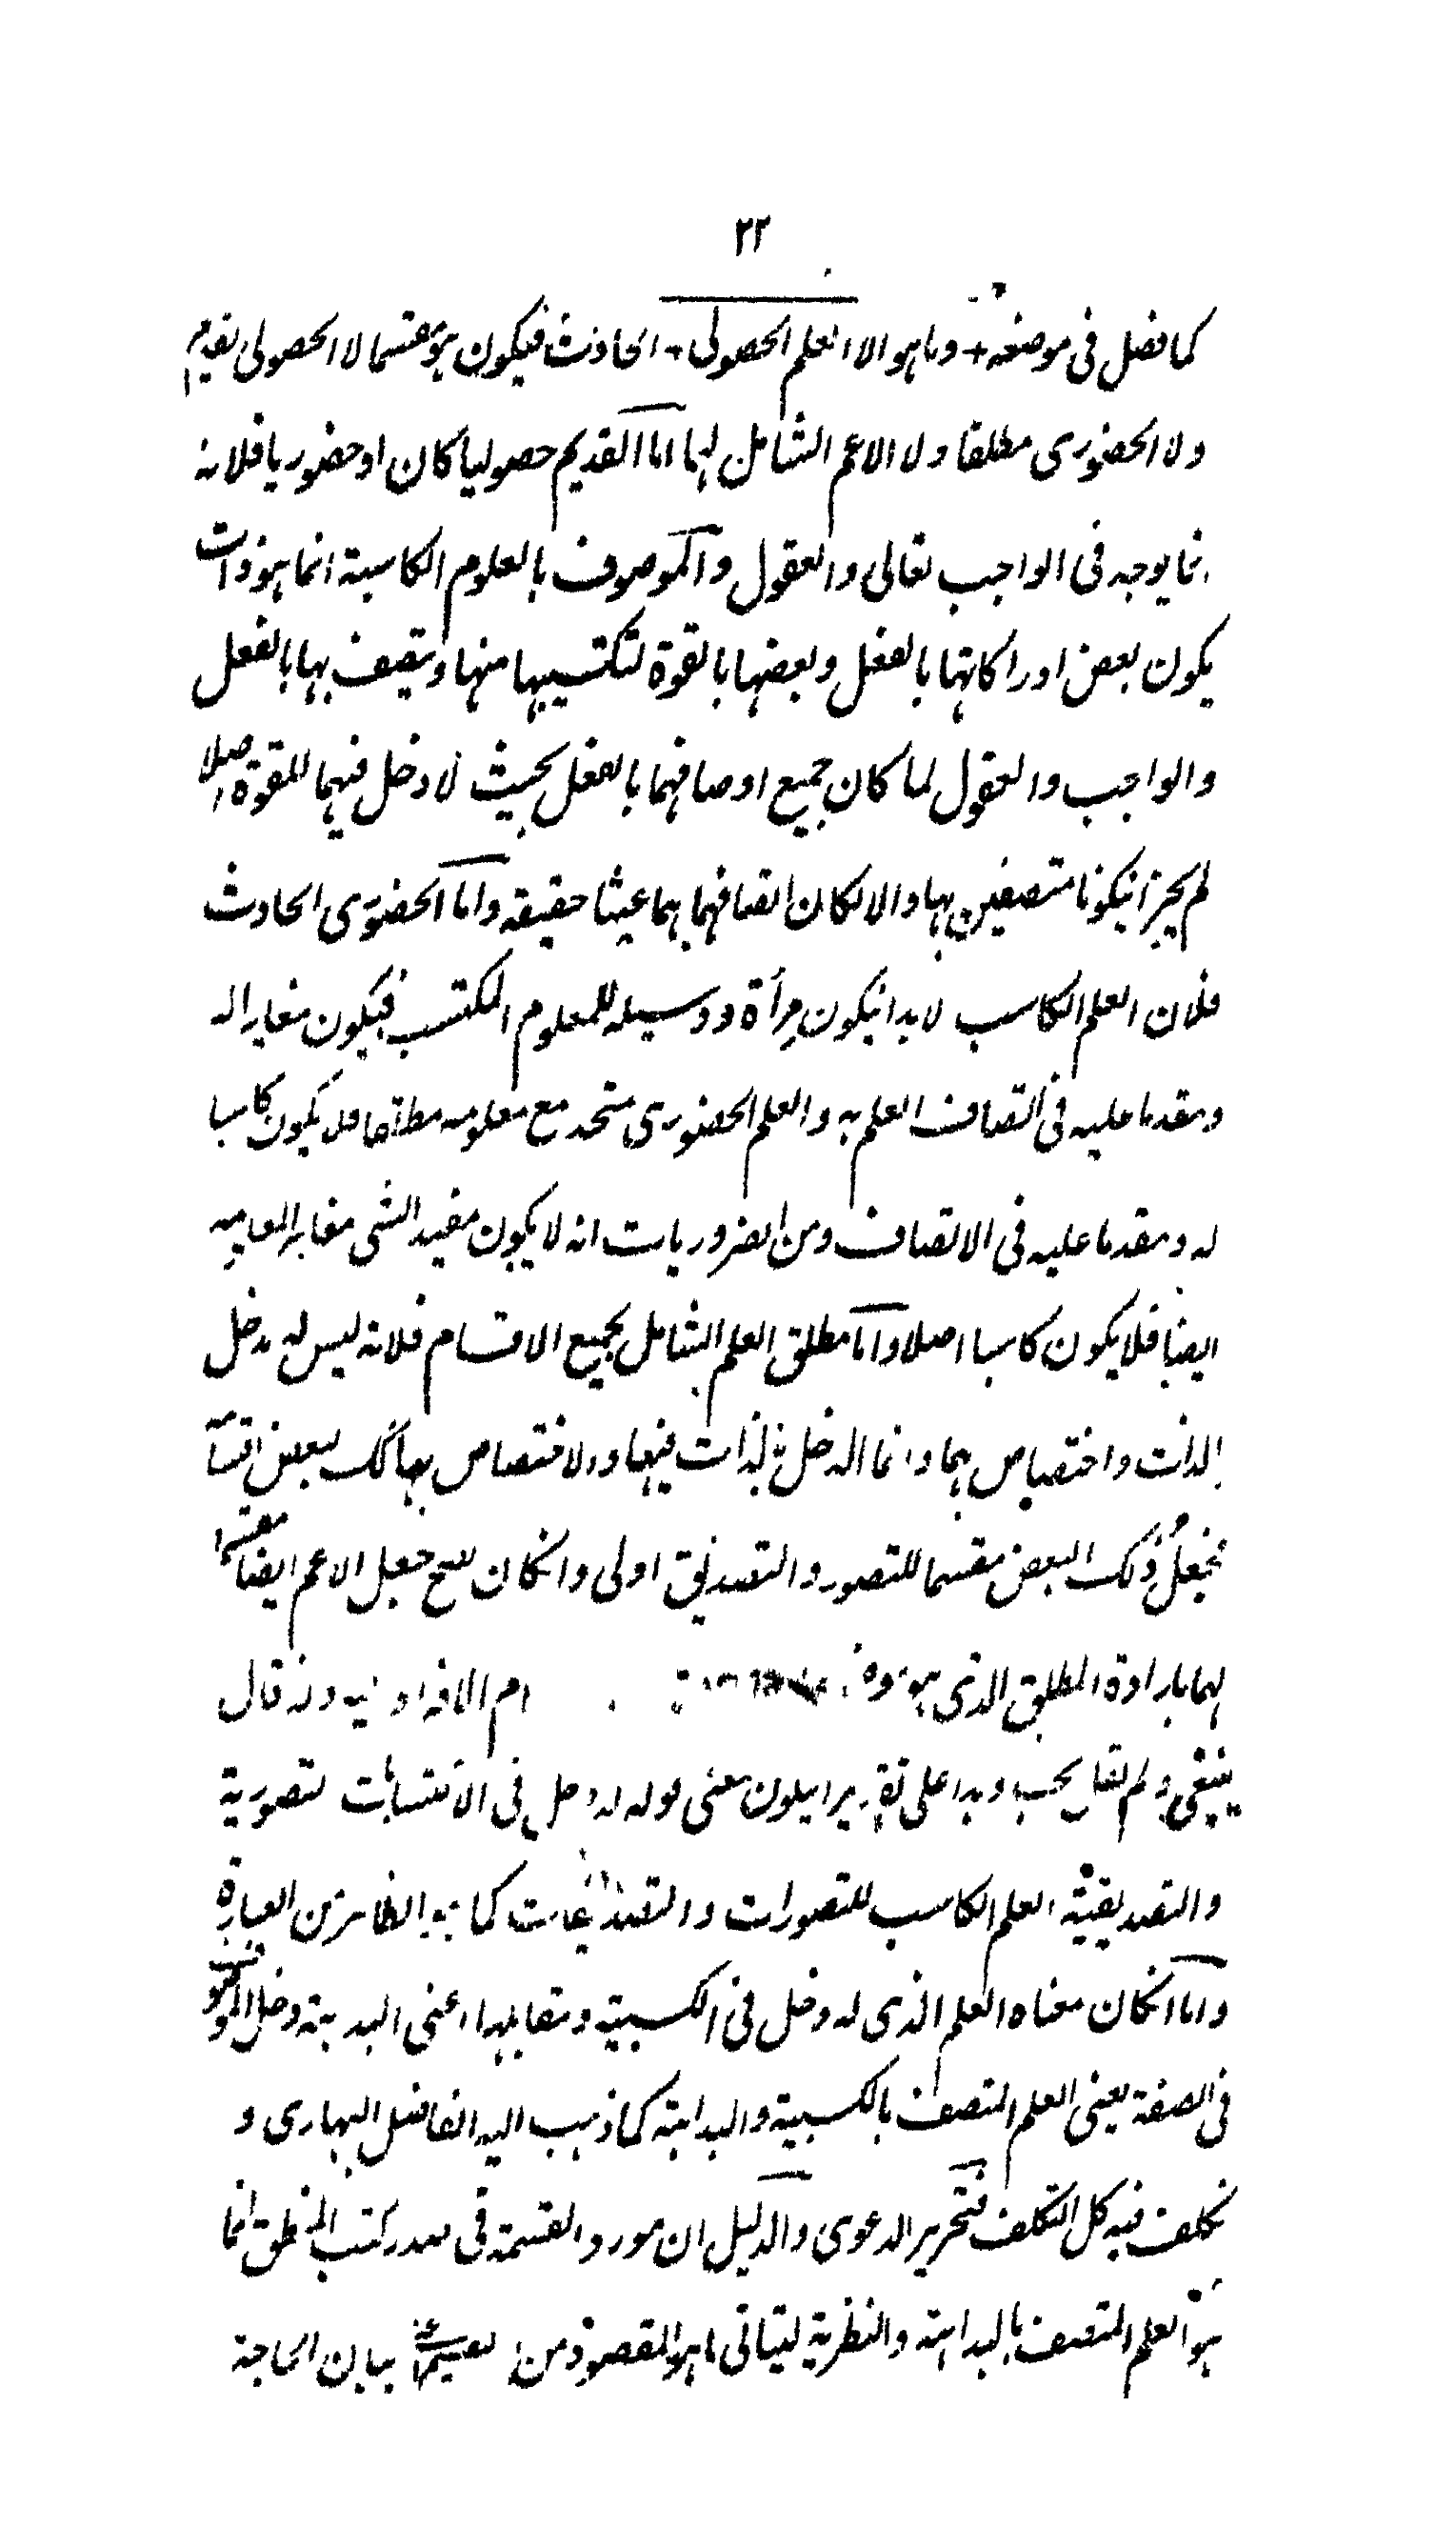 ٢٢
كما فصل فى موضعه + وما هو الا العلم الحصولى + الحادث فيكون هو مقسما لا الحصولى القديم
ولا الحضورى مطلقا ولا الاعم الشامل لهما اما القديم حصوليا كان او حضوريا فلانه
انما يوجد فى الواجب تعالى والعقول والموصوف بالعلوم الكاسبة انما هو ذات
يكون بعض ادراكاتها بالفعل وبعضها بالقوة لتكتسبها منها ويتصف بها بالفعل
والواجب والعقول لما كان جميع اوصافهما بالفعل بحيث لا دخل فيهما للقوة اصلا
لم يجز انيكونا متصفين بها والا لكان اتصافهما بهما عبثا حقيقه واما الحضورى الحادث
فلان العلم الكاسب لا بد انيكون مرأة ووسيله للمعلوم المكتسب فيكون مغايرا له
ومقدما عليه فى اتصاف العلم به والعلم الحضورى متحد مع معلومه مطلقا فلا يكون كاسبا
له ومقدما عليه فى الاتصاف ومن الضروريات انه لا يكون مفيد الشى مغاير
ايضا فلا يكون كاسبا اصلا واما مطلق العلم الشامل لجميع الاقسام فلانه ليس له مدخل
بالذات واختصاص بهما وانما المدخل بالذات فيها والاختصاص بها لك لبعض اقسامه
فجعل ذلك البعض مقسما للتصور والتصديق اولى وانكان يصح جعل الاعم ايضا مقسما
لهما بارادة المطلق الذى هو قال
ينبغى ولم يقل يجب وهذا على تقدير انيكون معنى قوله له دخل فى الاكتسابات التصورية
والتصديقية العلم الكاسب للتصورات والتصديقات كما هو الظاهر من العبارة
واما انكان معناه العلم الذى له دخل فى الكسبية ومقابلها اعنى البداهة دخل الموصوف
فى الصفة يعنى العلم المتصف بالكسبية والبداهة كما ذهب اليه الفاضل البهارى و
تكلف فيه كل التكلف فتحرير الدعوى والدليل ان مورد القسمة فى صدر كتب المنطق انما
هو العلم المتصف بالبداهة والنظرية ليتاتى ما هو المقصود من بيان الحاجة